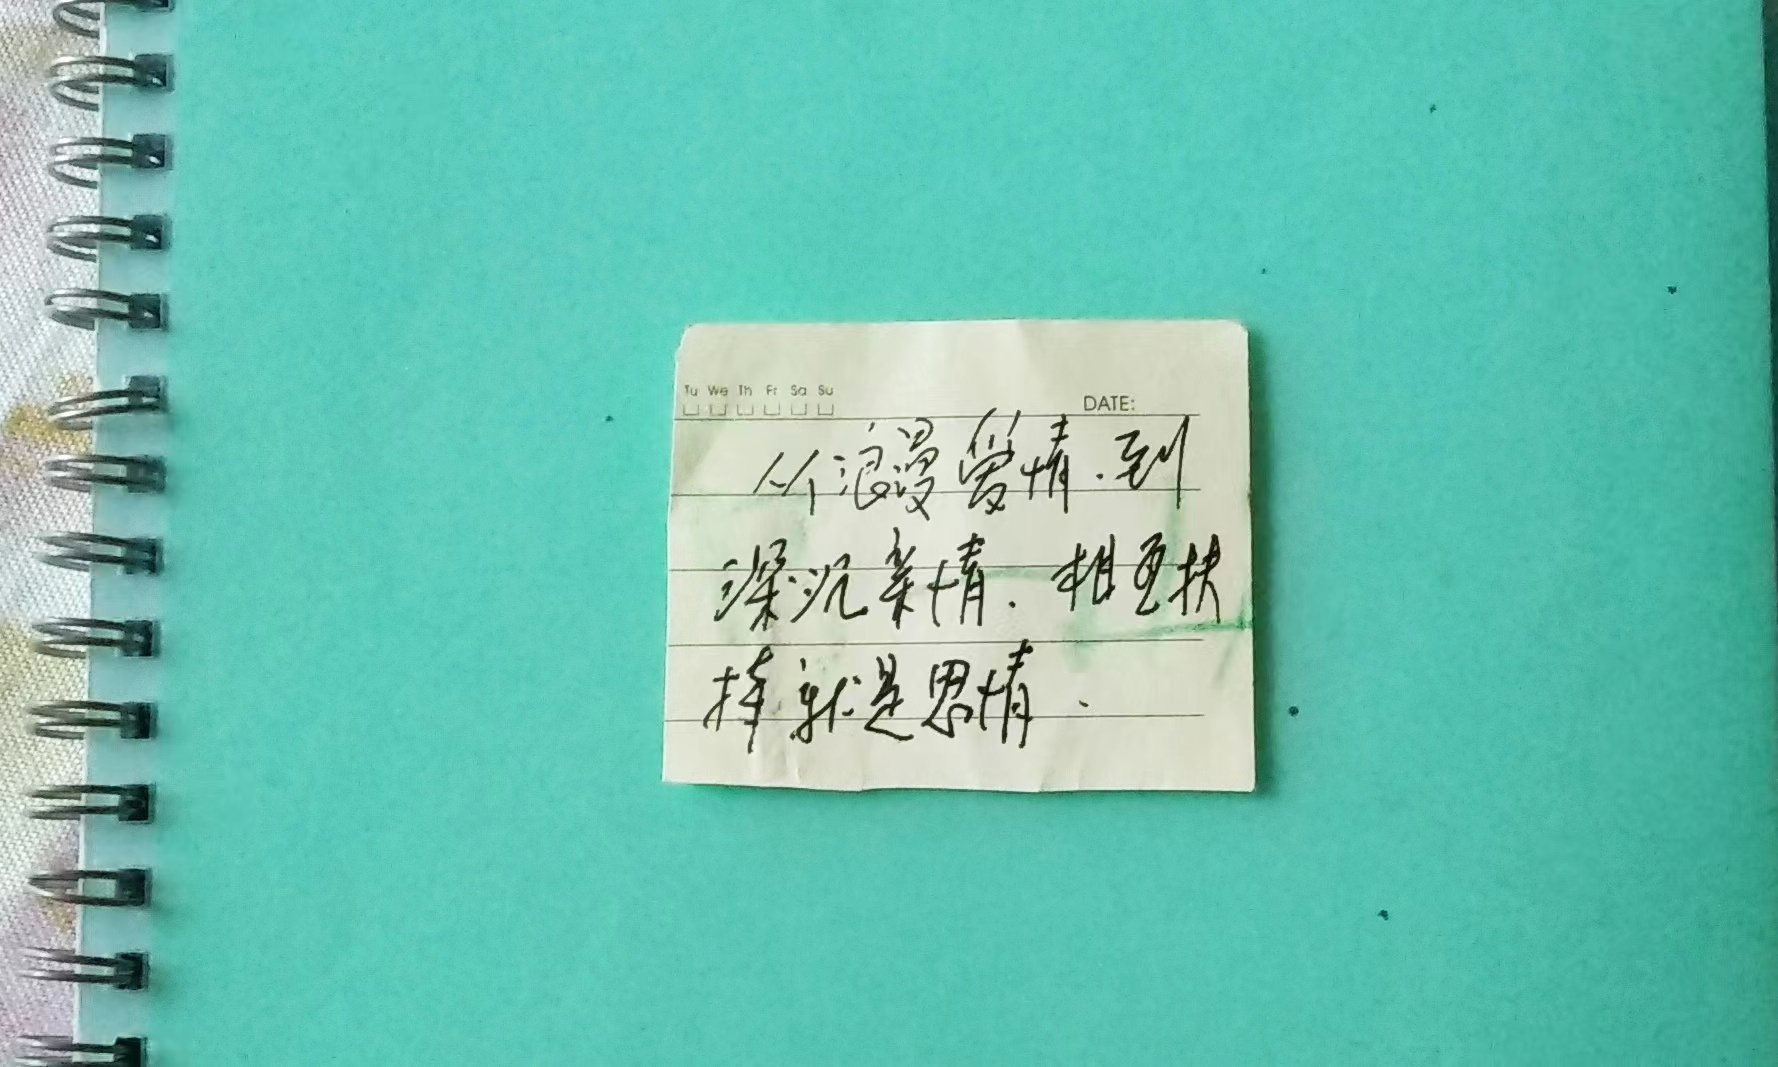 Tu We Th Fr Sa Su
DATE:
从浪漫爱情.到
深沉亲情.相互扶
择就是恩情.